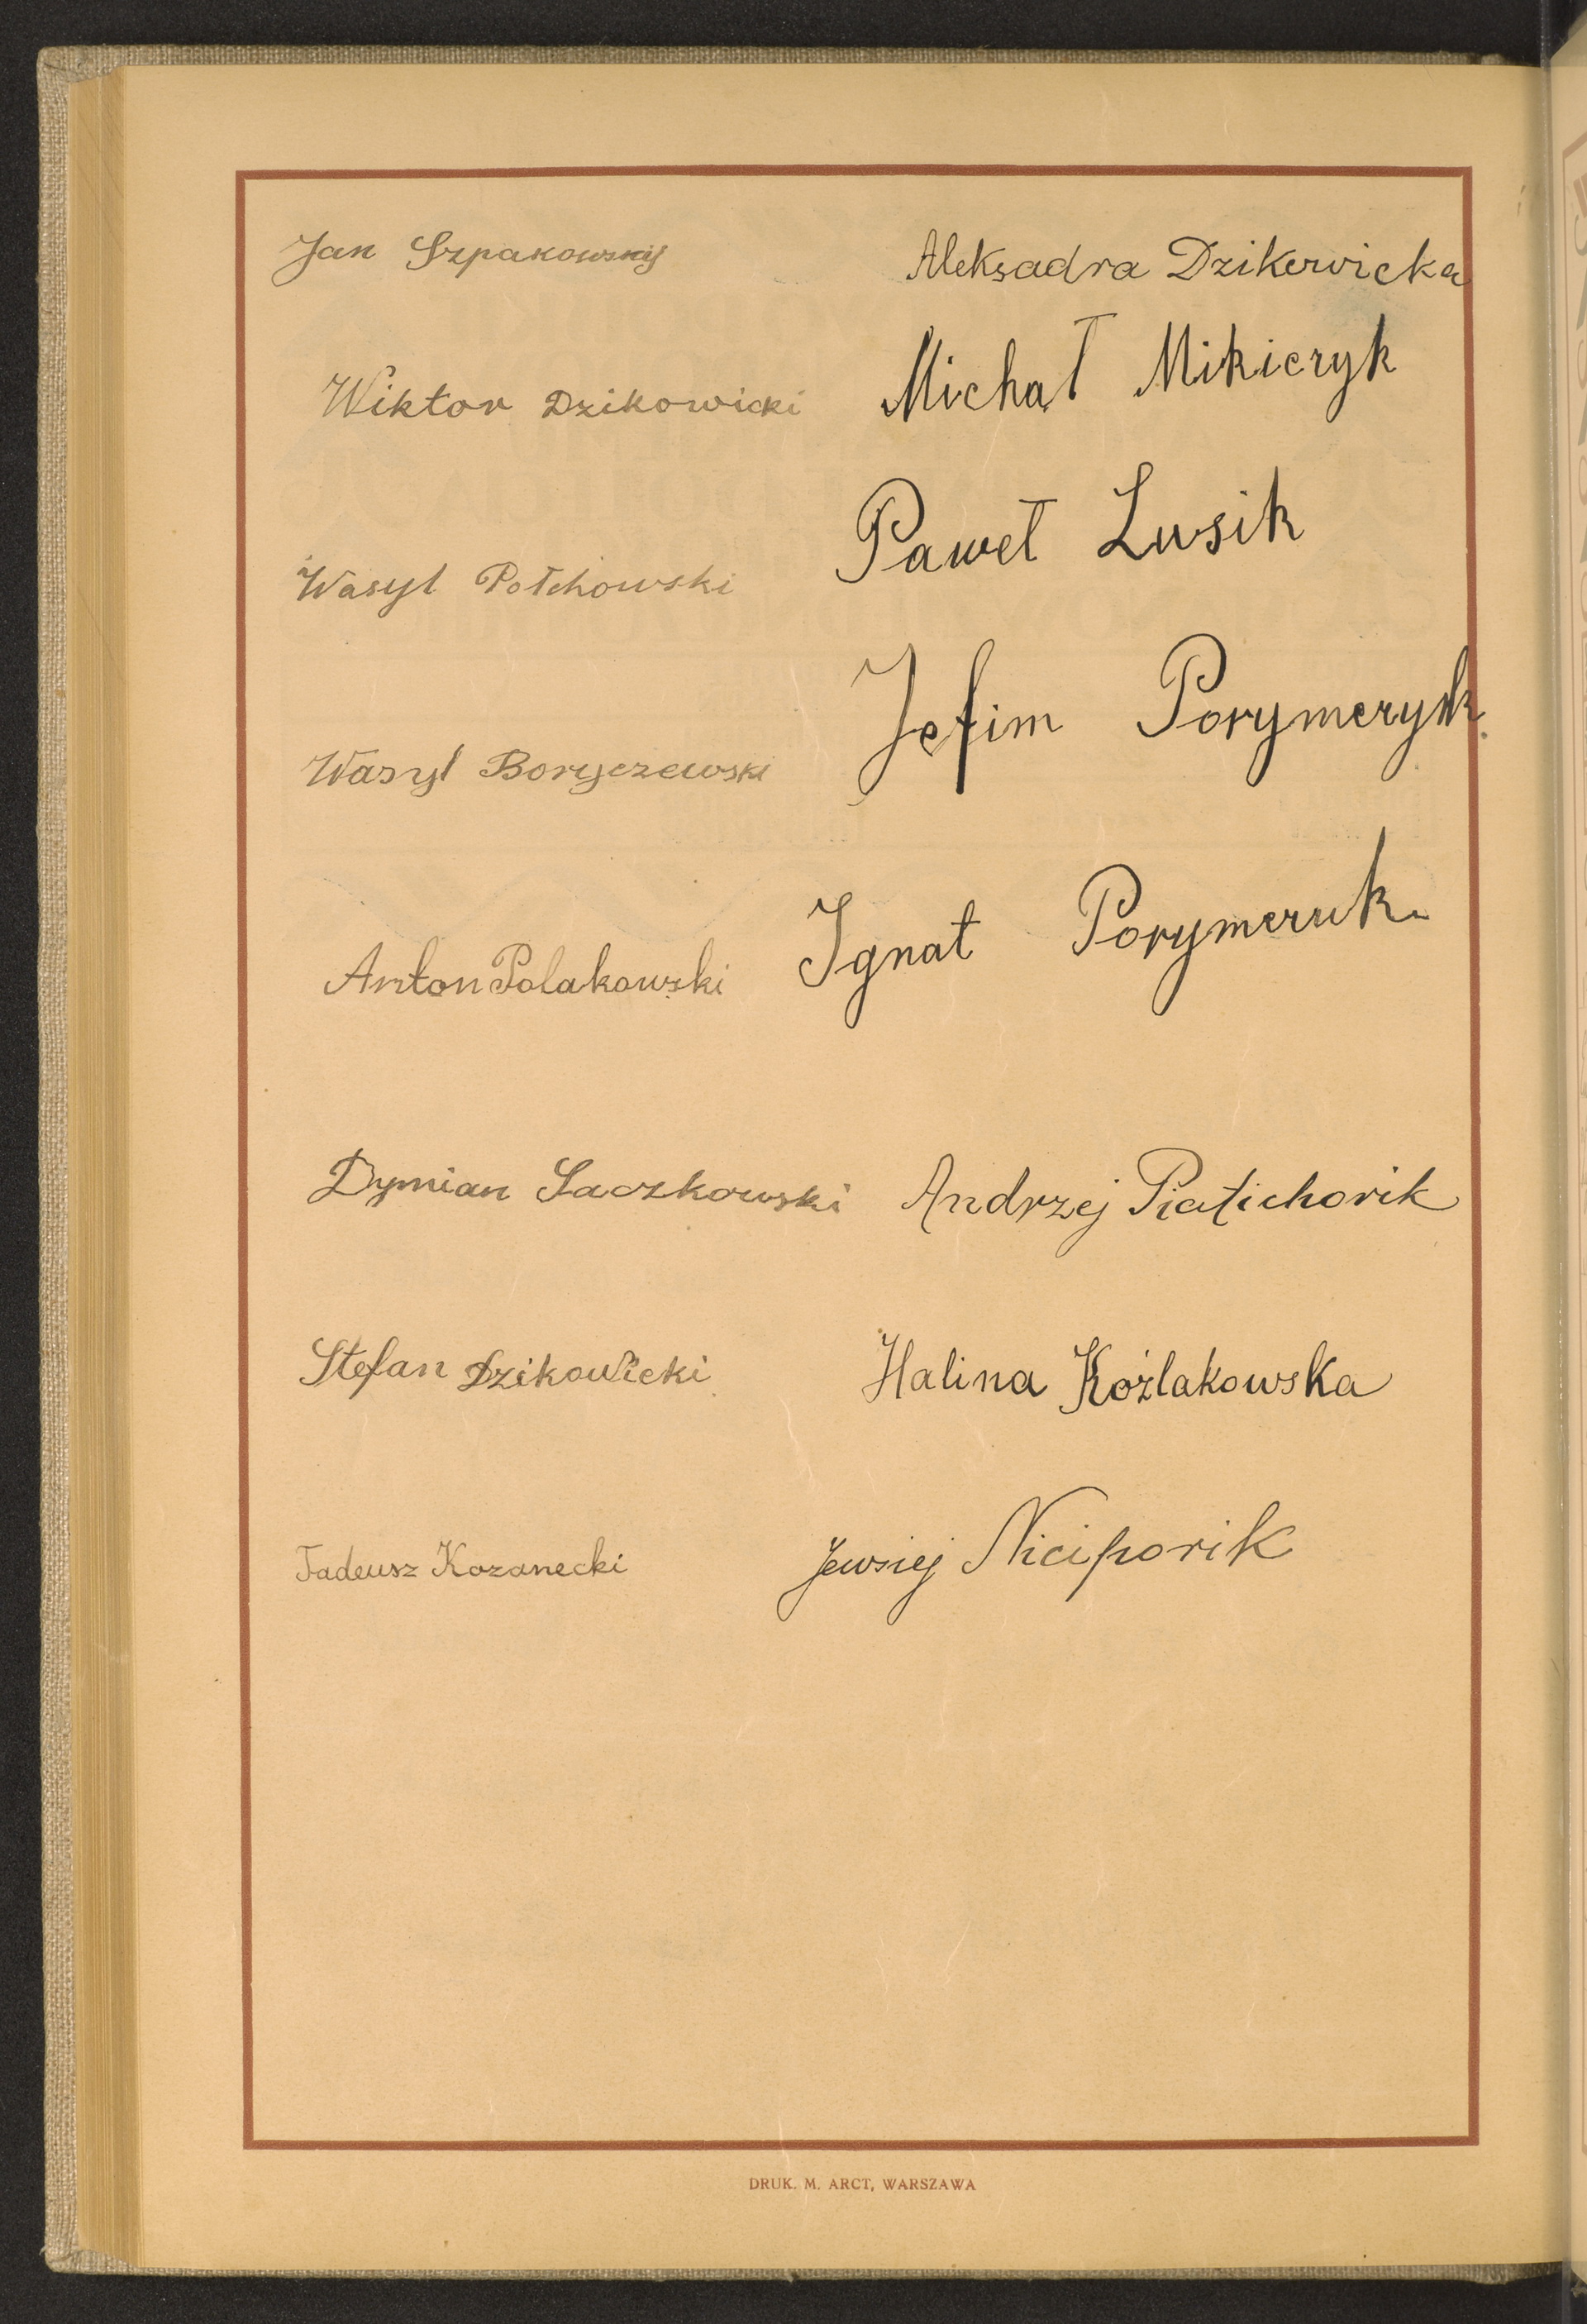 Jan Szpakowskij
Wiktor Dzikowicki
Wasyl Połchowski
Wasyl Boryczewski
Anton Polakowski
Dymian Saczkowski
Stefan Dzikowicki
Tadeusz Kozanecki
Aleksadra Dzikowicka
Michał Mikiczyk
Paweł Lusik
Jefim Porymczyk
Ignat Porymczuk
Andrzej Piatichorik
Halina Koźlakowska
Jewsiej Niciporik
DRUK. M. ARCT, WARSZAWA